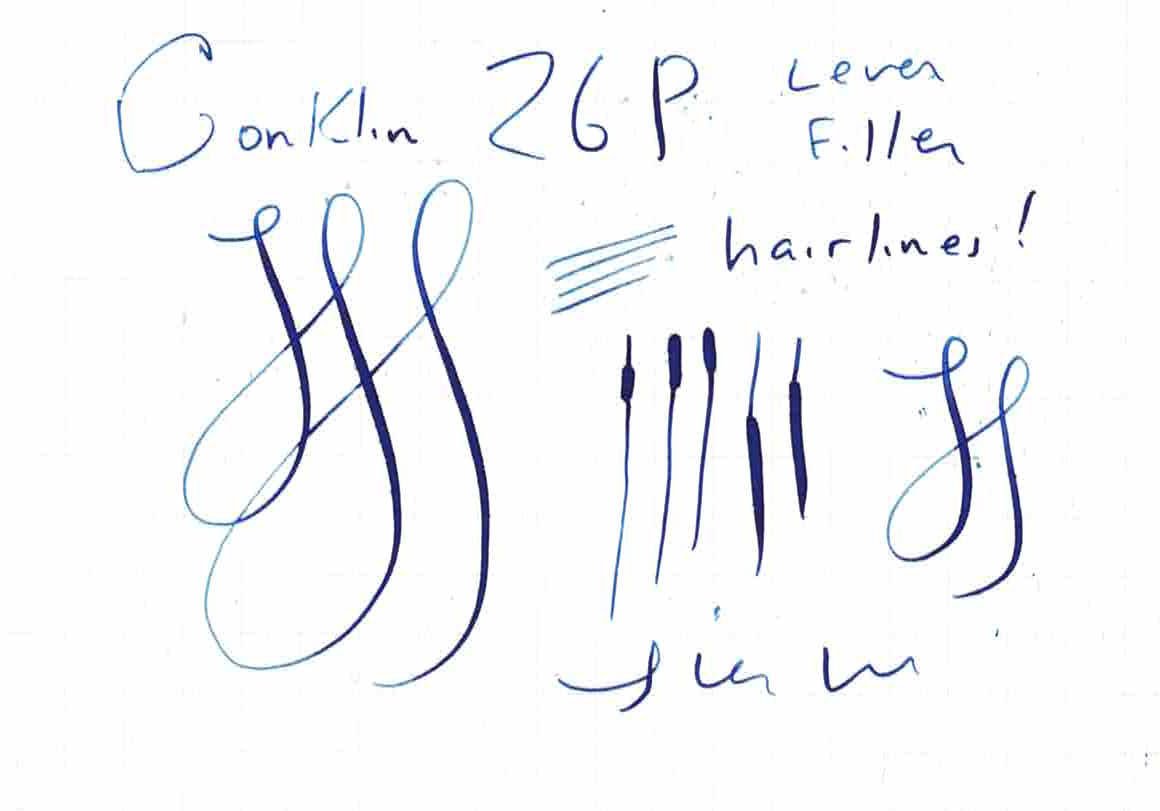 Conklin 26P Lever
Filler
hairlines!